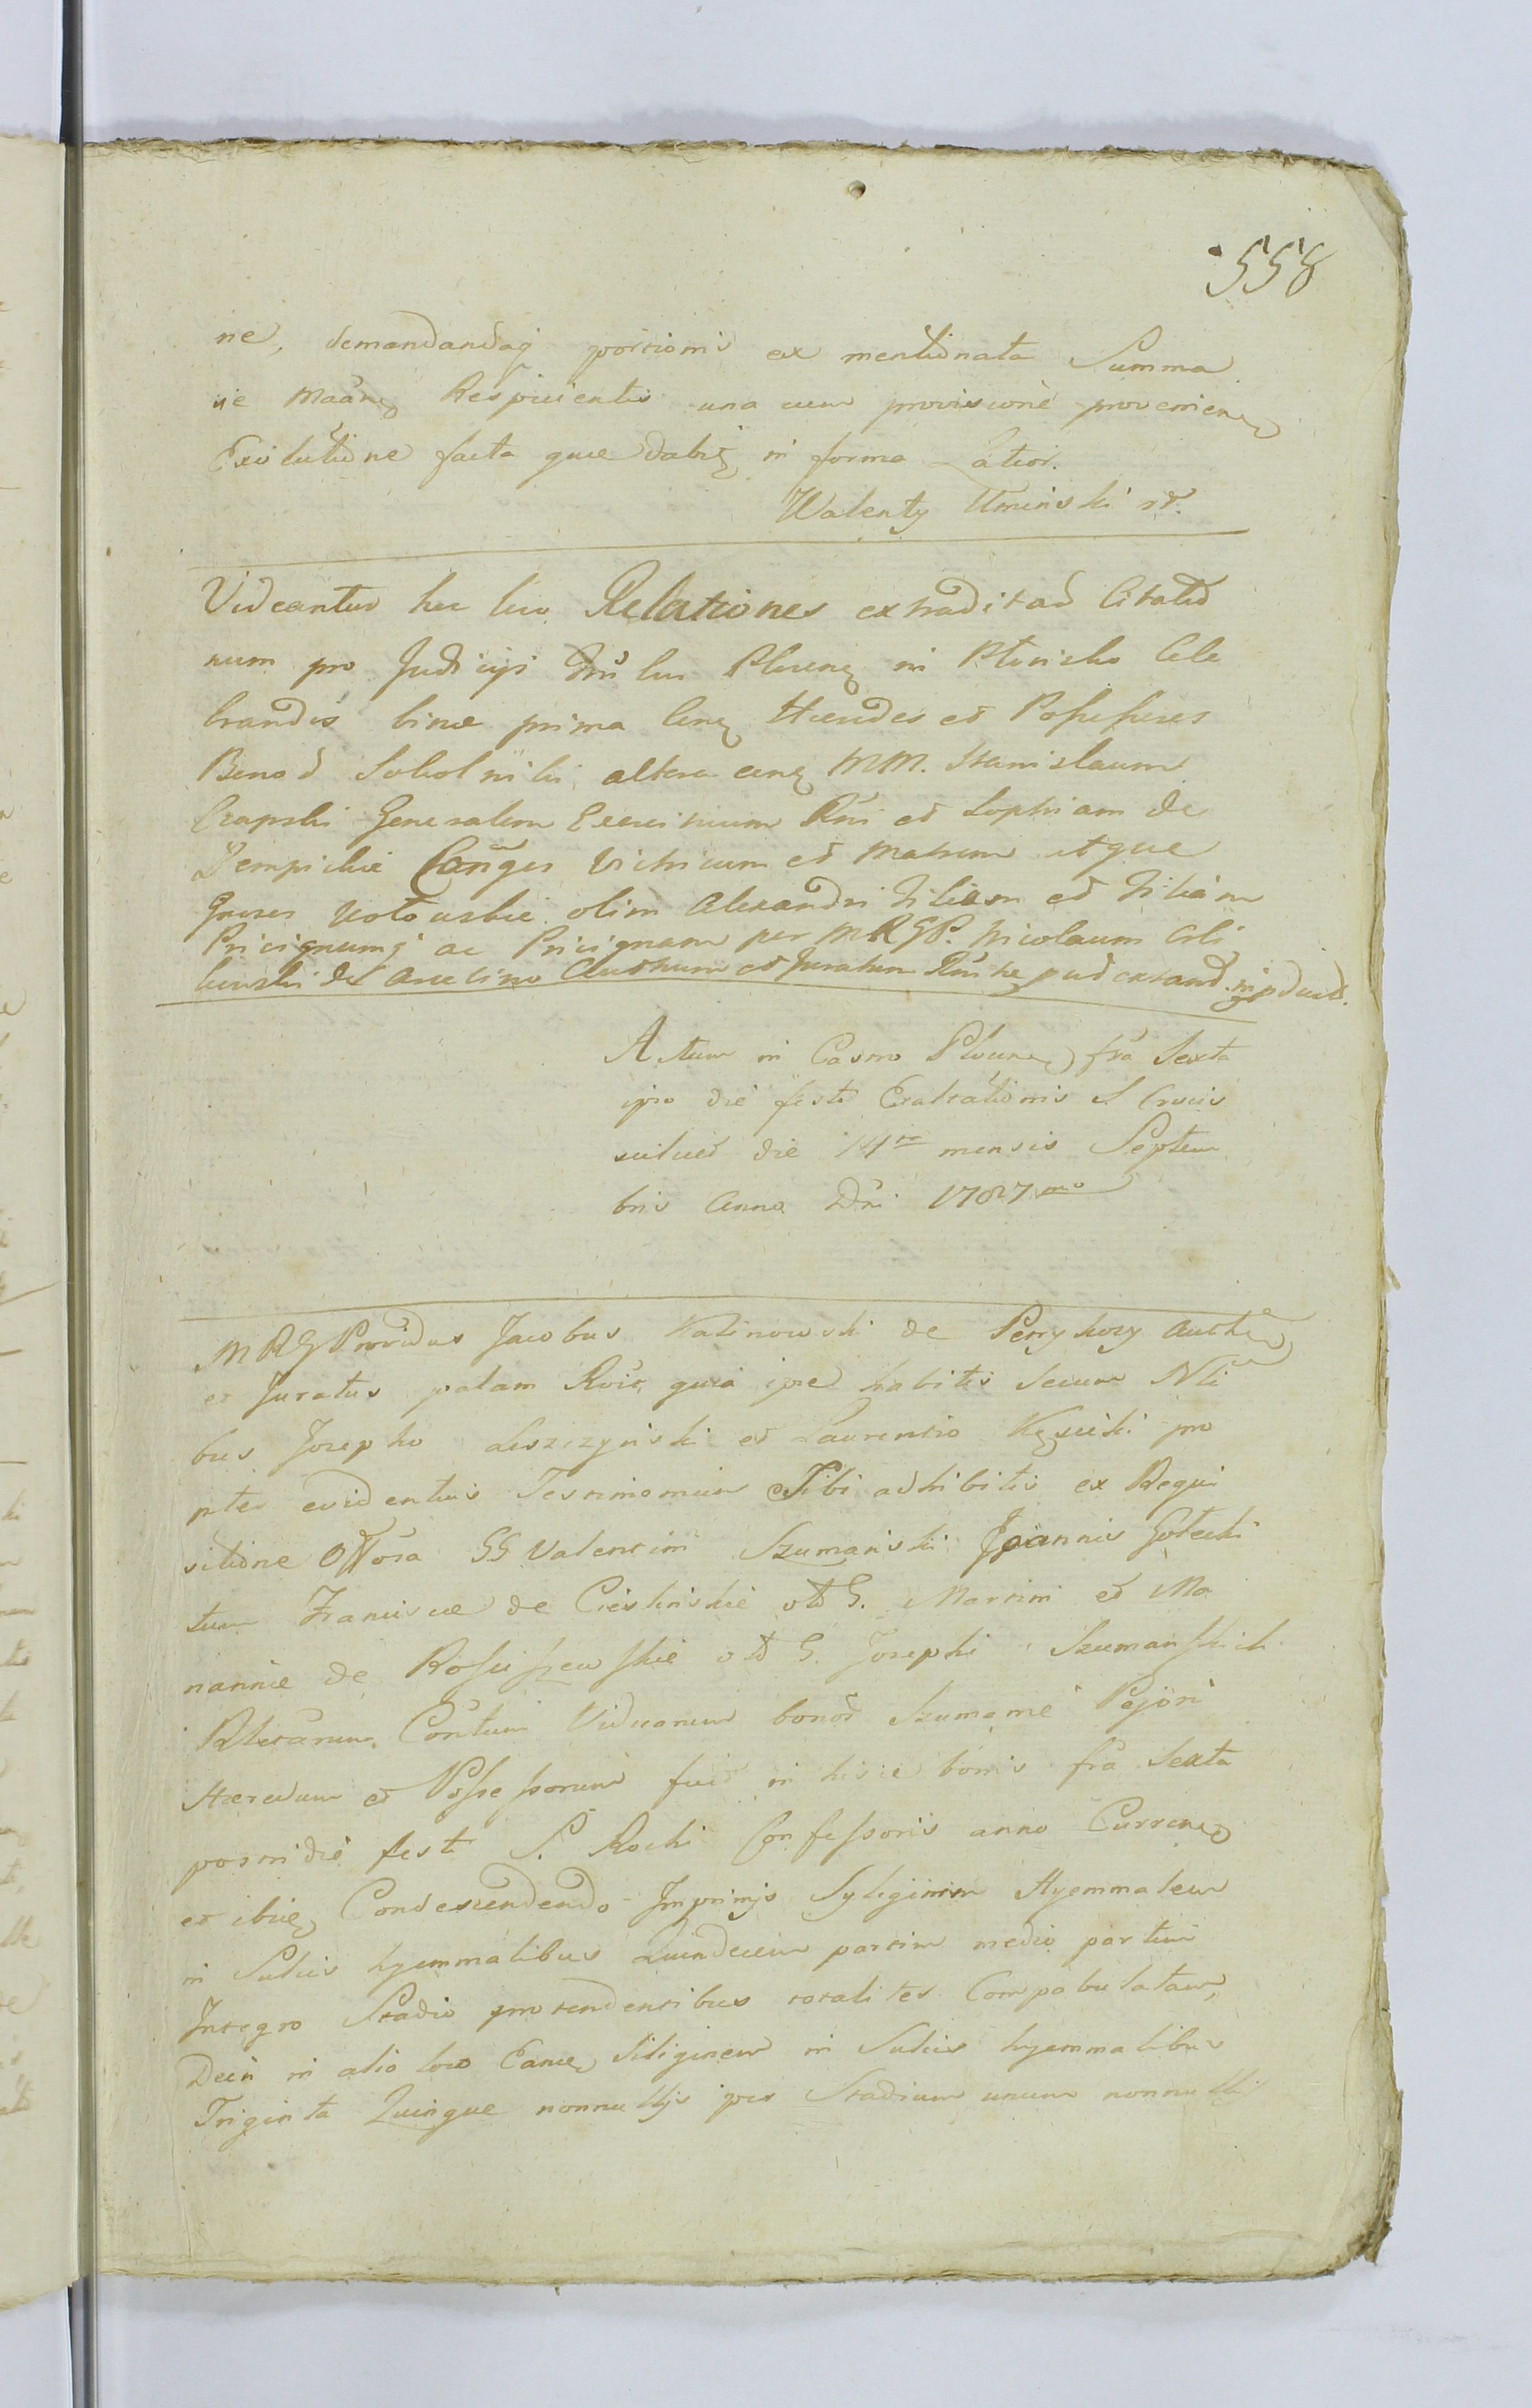 558
ne, demandandaq portionis ex mentionata Summa
se Respicientis una cum provisione provenien
Exolutione facta quae dabit in forma Latior.
Walenty Uminski
Videantur hic loco Relationes extraditar Citatio
num pro Judicijs Plocen in Płonsko Cele
brandis binae prima Hæredes et Possessores
Bonor Sokolniki, altera MM. Stanislaum
Czapski Generalem Exercituum Rni et Sophiam de
Dempickie Conges Vitricum et Matrem atque
olim Alexandri Filium et Filiam
Privignumq ac Privignam per MRGP. Nicolaum
de Ministerialem et Juratum
Actum in Castro Plocen fra Sexta
ipso die festi Exaltationis S Crucis
scilicet die 14ta mensis Septem
bris Anno Dni 1787mo
MRG Providus Jacobus Kalinowski de Authen
et Juratus palam Rcit, quia ipse habitis secum Nli
bus Josepho Leszczynski et Laurentio pro
pter evidentius Testimonium Sibi adhibitis ex Requi
sitione GG Valentini Szumański Joannis Gołecki
tum Franciscæ de Cieslinskie olim G. Martini et Ma
riannæ de Rosciszewskie olim G. Josephi Szumanskich
Relictarum Contum Viduarum bonor Szumanie Pejori
Hæredum et Possessorum fuit in hisce bonis fra Sexta
postridie festi S. Rochi Confessoris anno Curren
et ibiq Condescendendo Imprimis Syliginem Hyemmalem
in Sulcis hyemmalibus Quindecim partim medio partim
Integro Stadio protendentibus totaliter Compabulatam,
Dein in alio loco Eamq Siliginem in Sulcis hyemmalibus
Triginta Quinque nonnullis per Stadium unum nonnullis